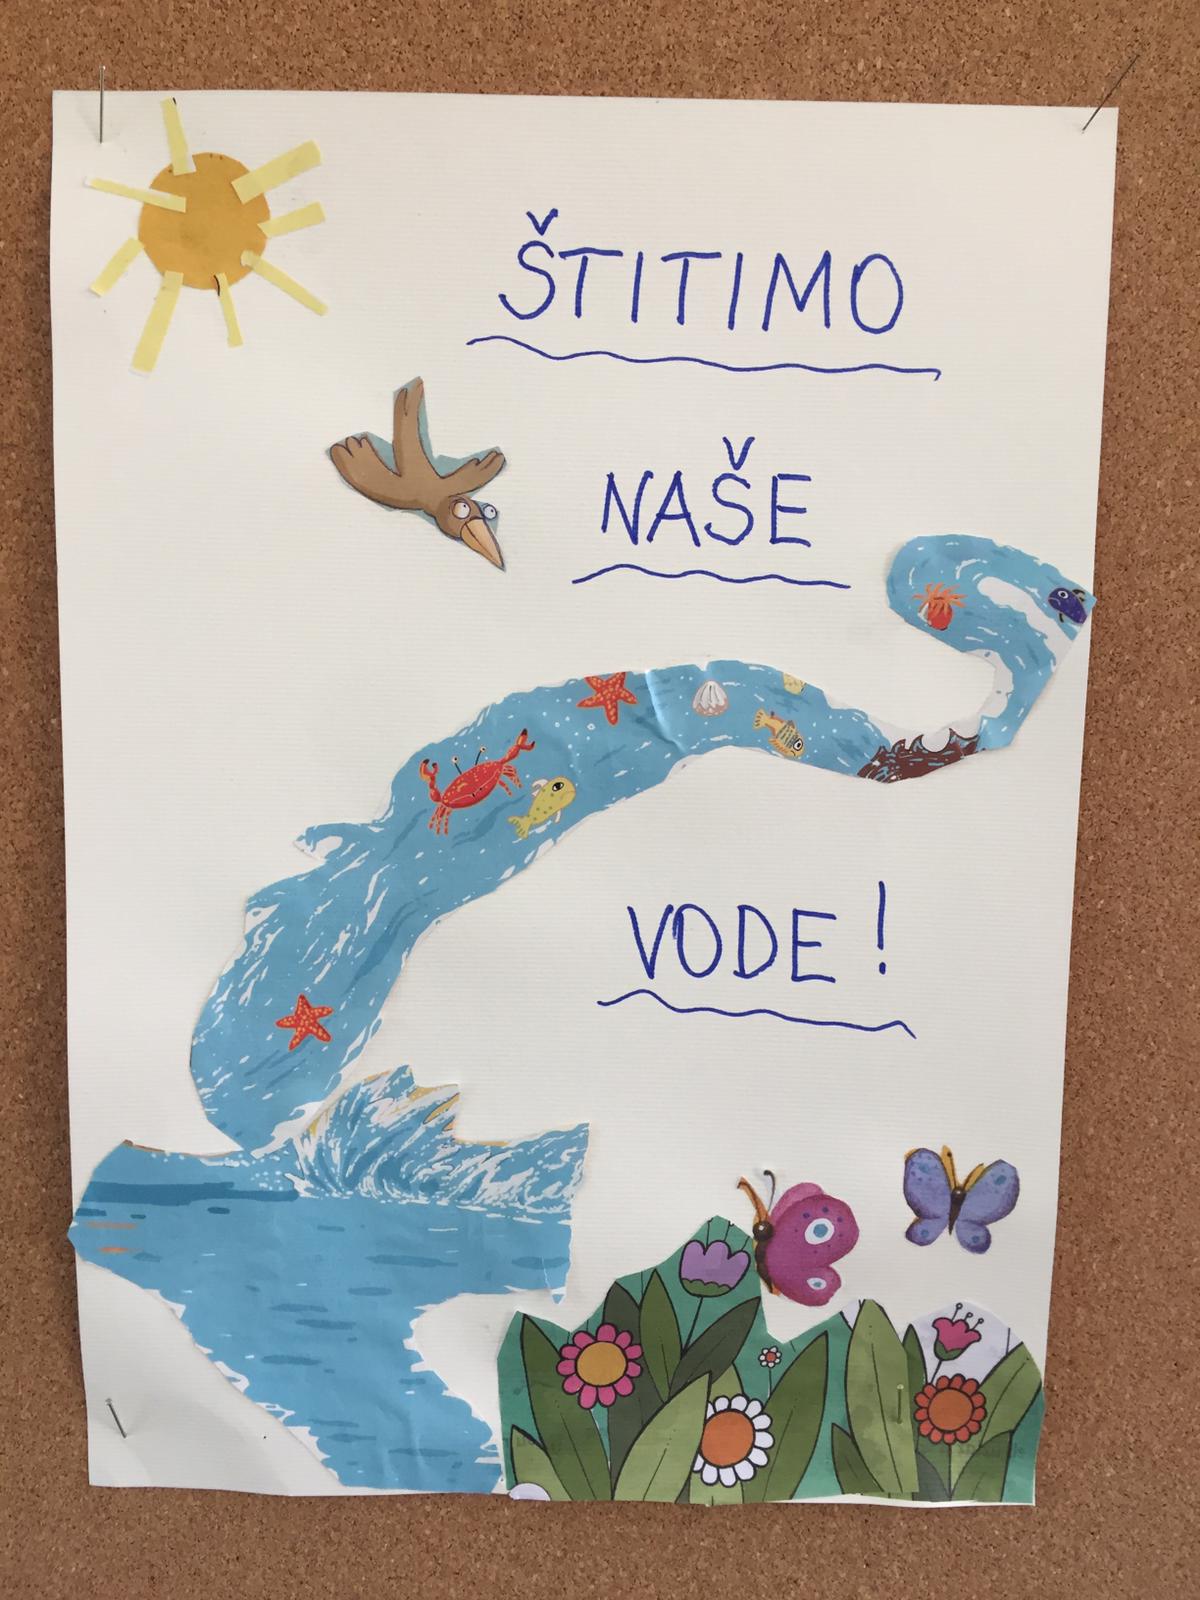 ŠTITIMO
NAŠE
VODE!